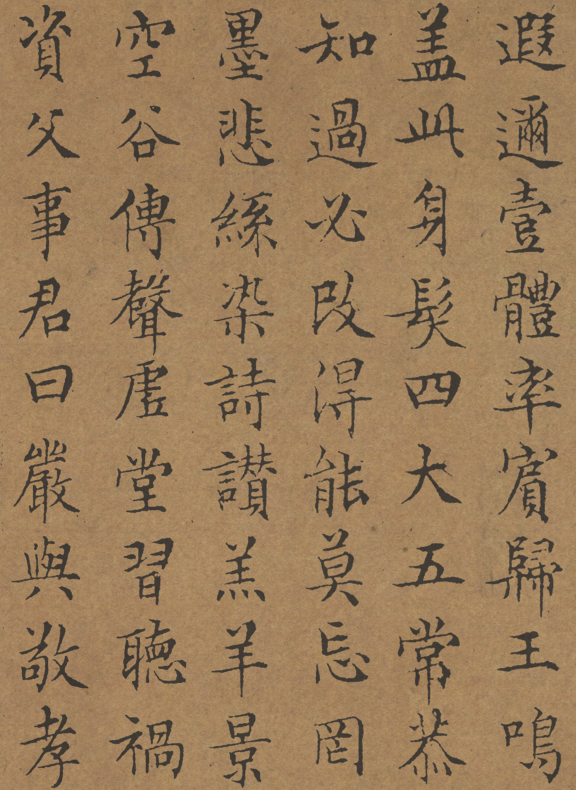 遐邇壹體率賓歸王鳴
盖此身髮四大五常恭
知過必改得能莫忘罔
墨悲絲染詩讃羔羊景
空谷傳聲虛堂習聽禍
資父事君曰嚴與敬孝